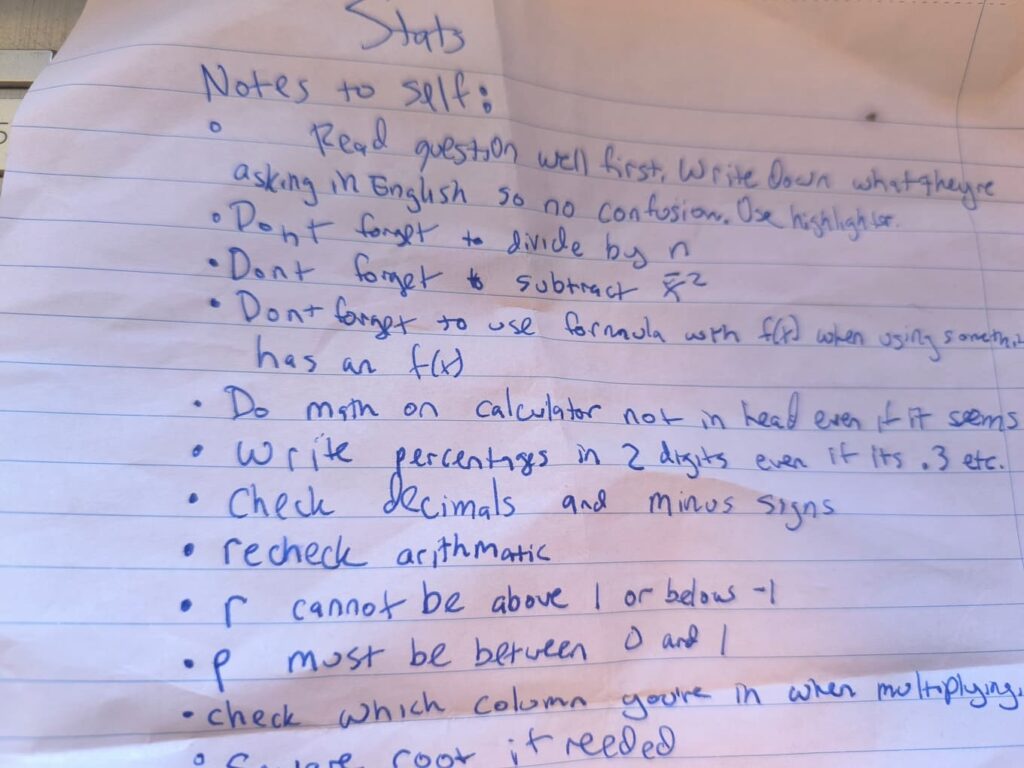 Stats
Notes to self:
◦ Read question well first. Write Down what they're
asking in English so no confusion. Use highlighter.
• Dont forget to divide by n
• Dont forget to subtract x̄²
• Dont forget to use formula with f(x) when using
has an f(x)
• Do math on calculator not in head even if it seems
• Write percentages in 2 digits even if its .3 etc.
• Check decimals and minus signs
• recheck arithmatic
• r cannot be above 1 or below -1
• p must be between 0 and 1
• check which column you're in when multiplying.
◦ Square root if needed